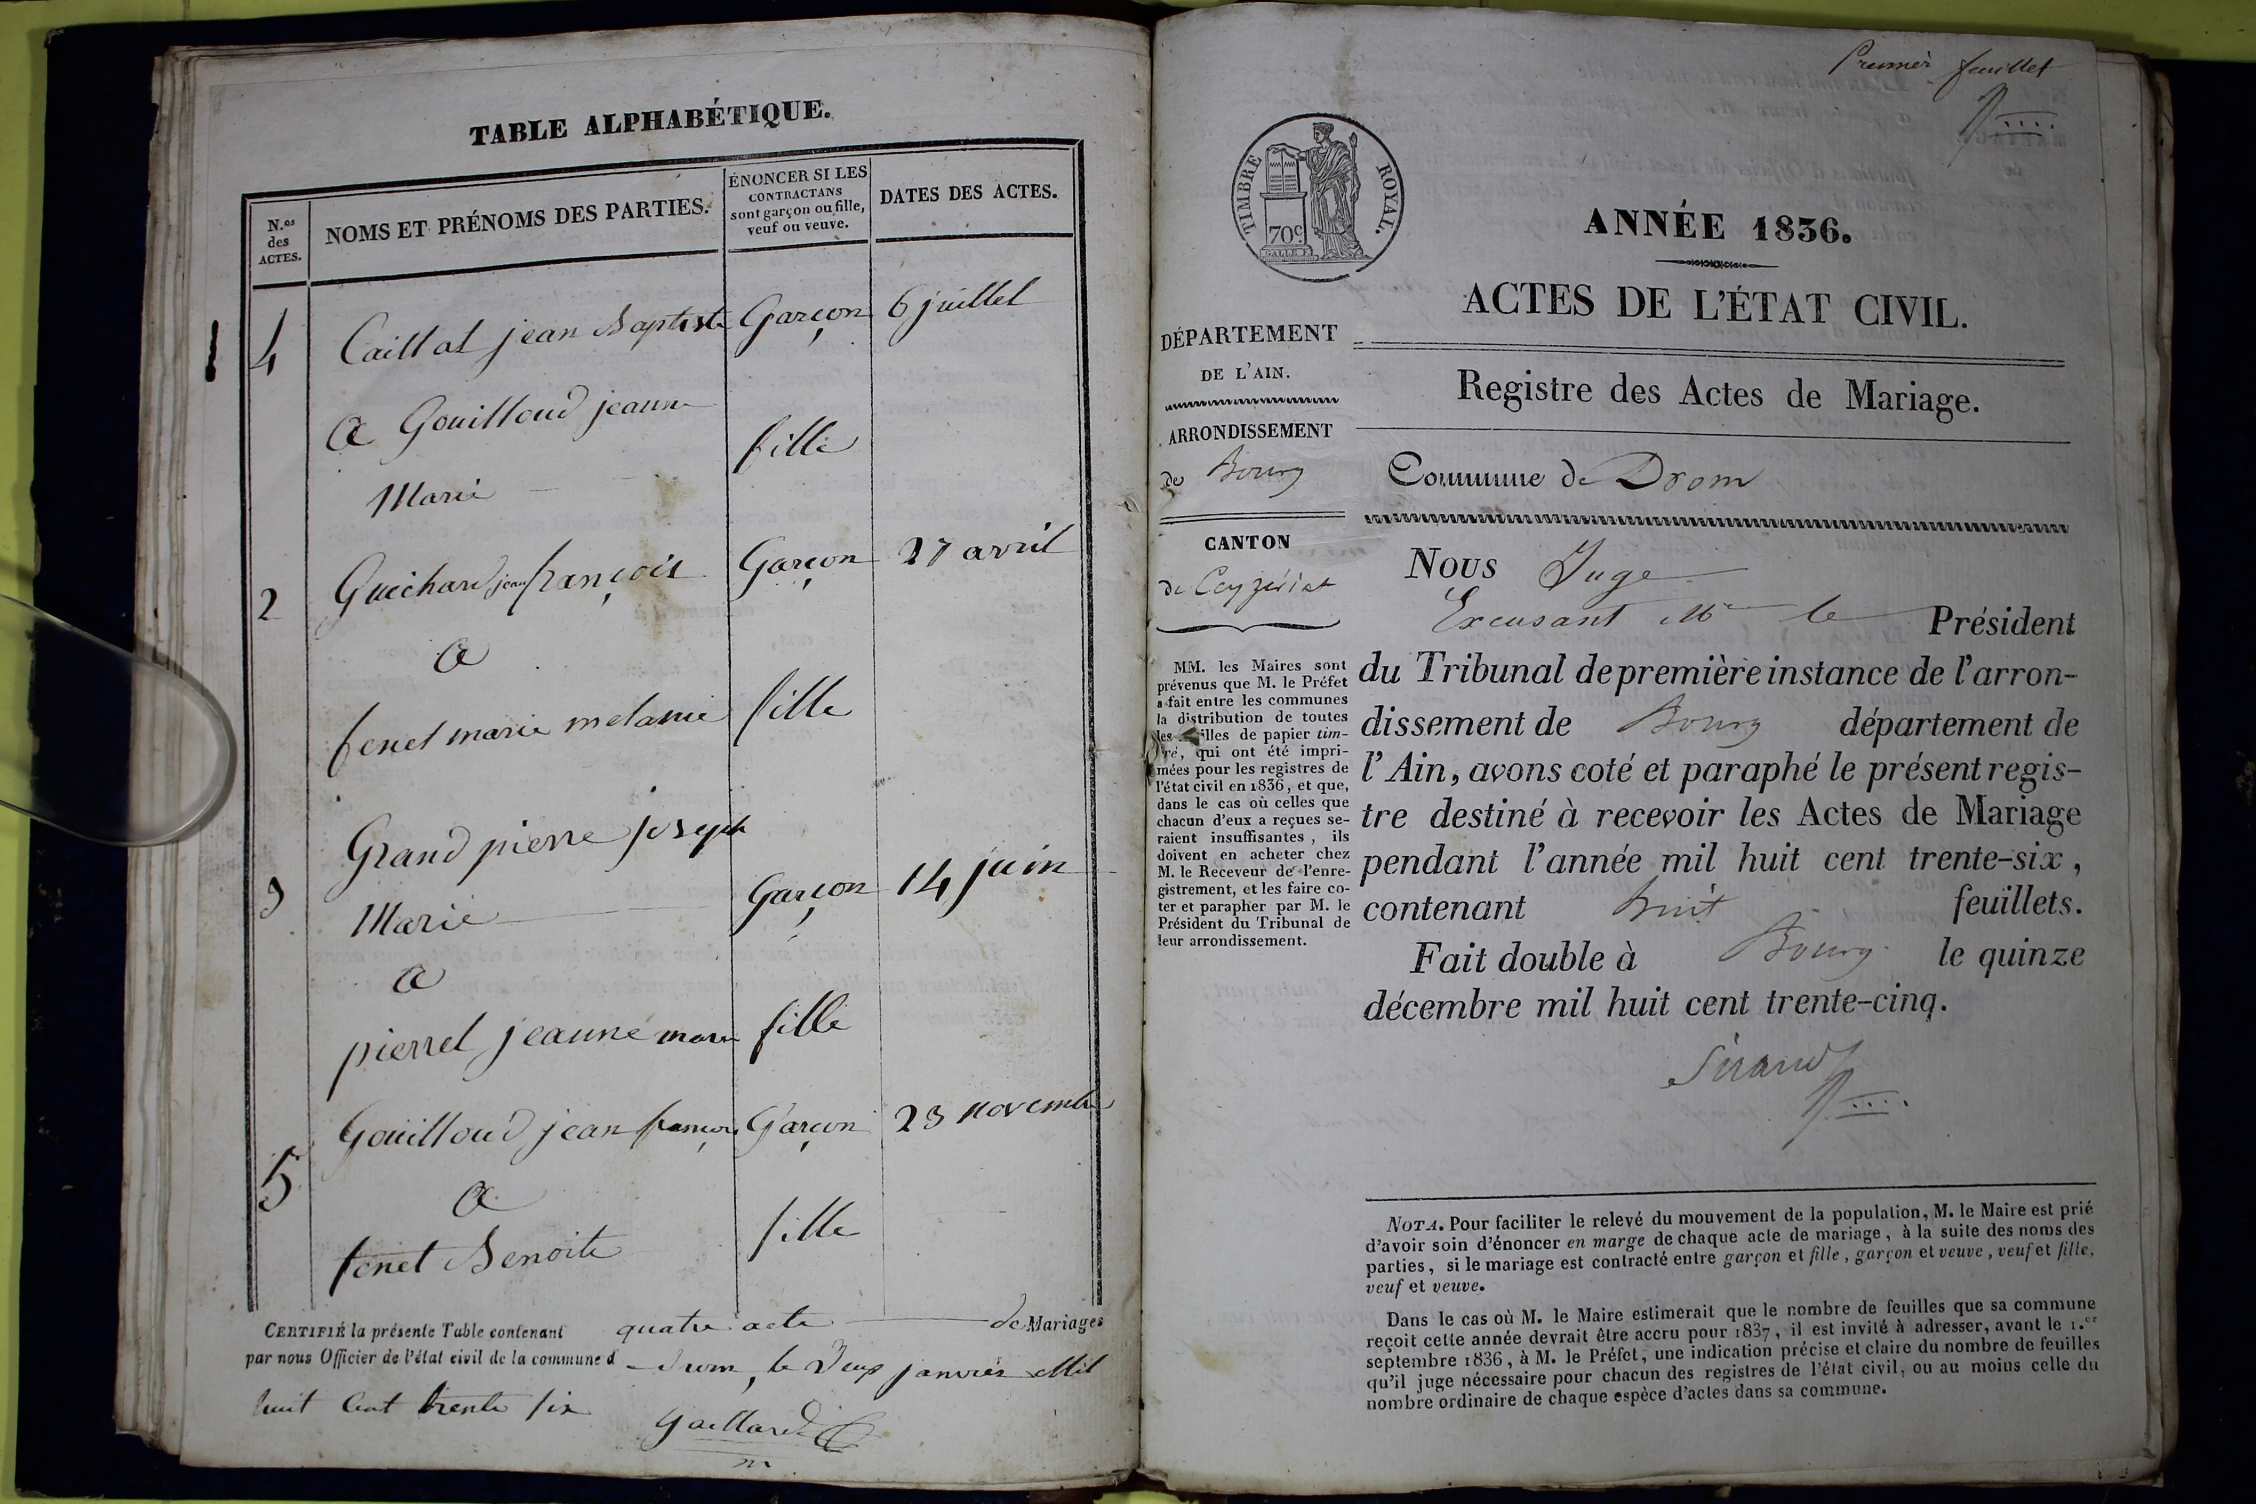 TABLE ALPHABÉTIQUE.
N.os des ACTES.
NOMS ET PRÉNOMS DES PARTIES.
ÉNONCER SI LES
CONTRACTANS
sont garçon ou fille,
veuf ou veuve.
DATES DES ACTES.
4 Caillat jean Baptiste Garçon 6 juillet
a Gouilloud jeanne
fille
Marie
2 Guichard jean françois Garçon 27 avril
a
fenet marie melanie fille
Grand pierre joseph
3 Marie Garçon 14 juin
a
pierrel jeanne marie fille
Gouilloud jean françois Garçon 23 novembre
5
a
fenet Benoite fille
CERTIFIÉ la présente Table contenant quatre acte de Mariages
par nous Officier de l'état civil de la commune d Drom, le Deux janvier Mil
huit Cent trente six
Gaillard
Premier feuillet
TIMBRE ROYAL.
70c
ANNÉE 1836.
ACTES DE L'ÉTAT CIVIL.
DÉPARTEMENT
DE L'AIN.
ARRONDISSEMENT
de Bourg
CANTON
de Ceyzériat
MM. les Maires sont
prévenus que M. le Préfet
a fait entre les communes
la distribution de toutes
les illes de papier tim-
ré, qui ont été impri-
mées pour les registres de
l'état civil en 1836, et que,
dans le cas où celles que
chacun d'eux a reçues se-
raient insuffisantes, ils
doivent en acheter chez
M. le Receveur de l'enre-
gistrement, et les faire co-
ter et parapher par M. le
Président du Tribunal de
leur arrondissement.
Registre des Actes de Mariage.
Commune de Drom
Nous Juge
Excusant Mr le Président
du Tribunal de première instance de l'arron-
dissement de Bourg département de
l'Ain, avons coté et paraphé le présent regis-
tre destiné à recevoir les Actes de Mariage
pendant l'année mil huit cent trente-six,
contenant huit feuillets.
Fait double à Bourg le quinze
décembre mil huit cent trente-cinq.
Sirand
NOTA. Pour faciliter le relevé du mouvement de la population, M. le Maire est prié
d'avoir soin d'énoncer en marge de chaque acte de mariage, à la suite des noms des
parties, si le mariage est contracté entre garçon et fille, garçon et veuve, veuf et fille,
veuf et veuve.
Dans le cas où M. le Maire estimerait que le nombre de feuilles que sa commune
reçoit cette année devrait être accru pour 1837, il est invité à adresser, avant le 1.er
septembre 1836, à M. le Préfet, une indication précise et claire du nombre de feuilles
qu'il juge nécessaire pour chacun des registres de l'état civil, ou au moins celle du
nombre ordinaire de chaque espèce d'actes dans sa commune.